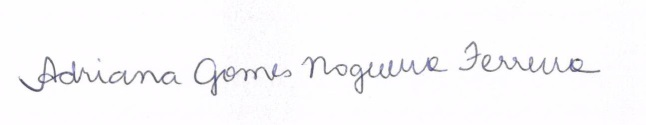 Adriana Gomes Nogueira Ferreira